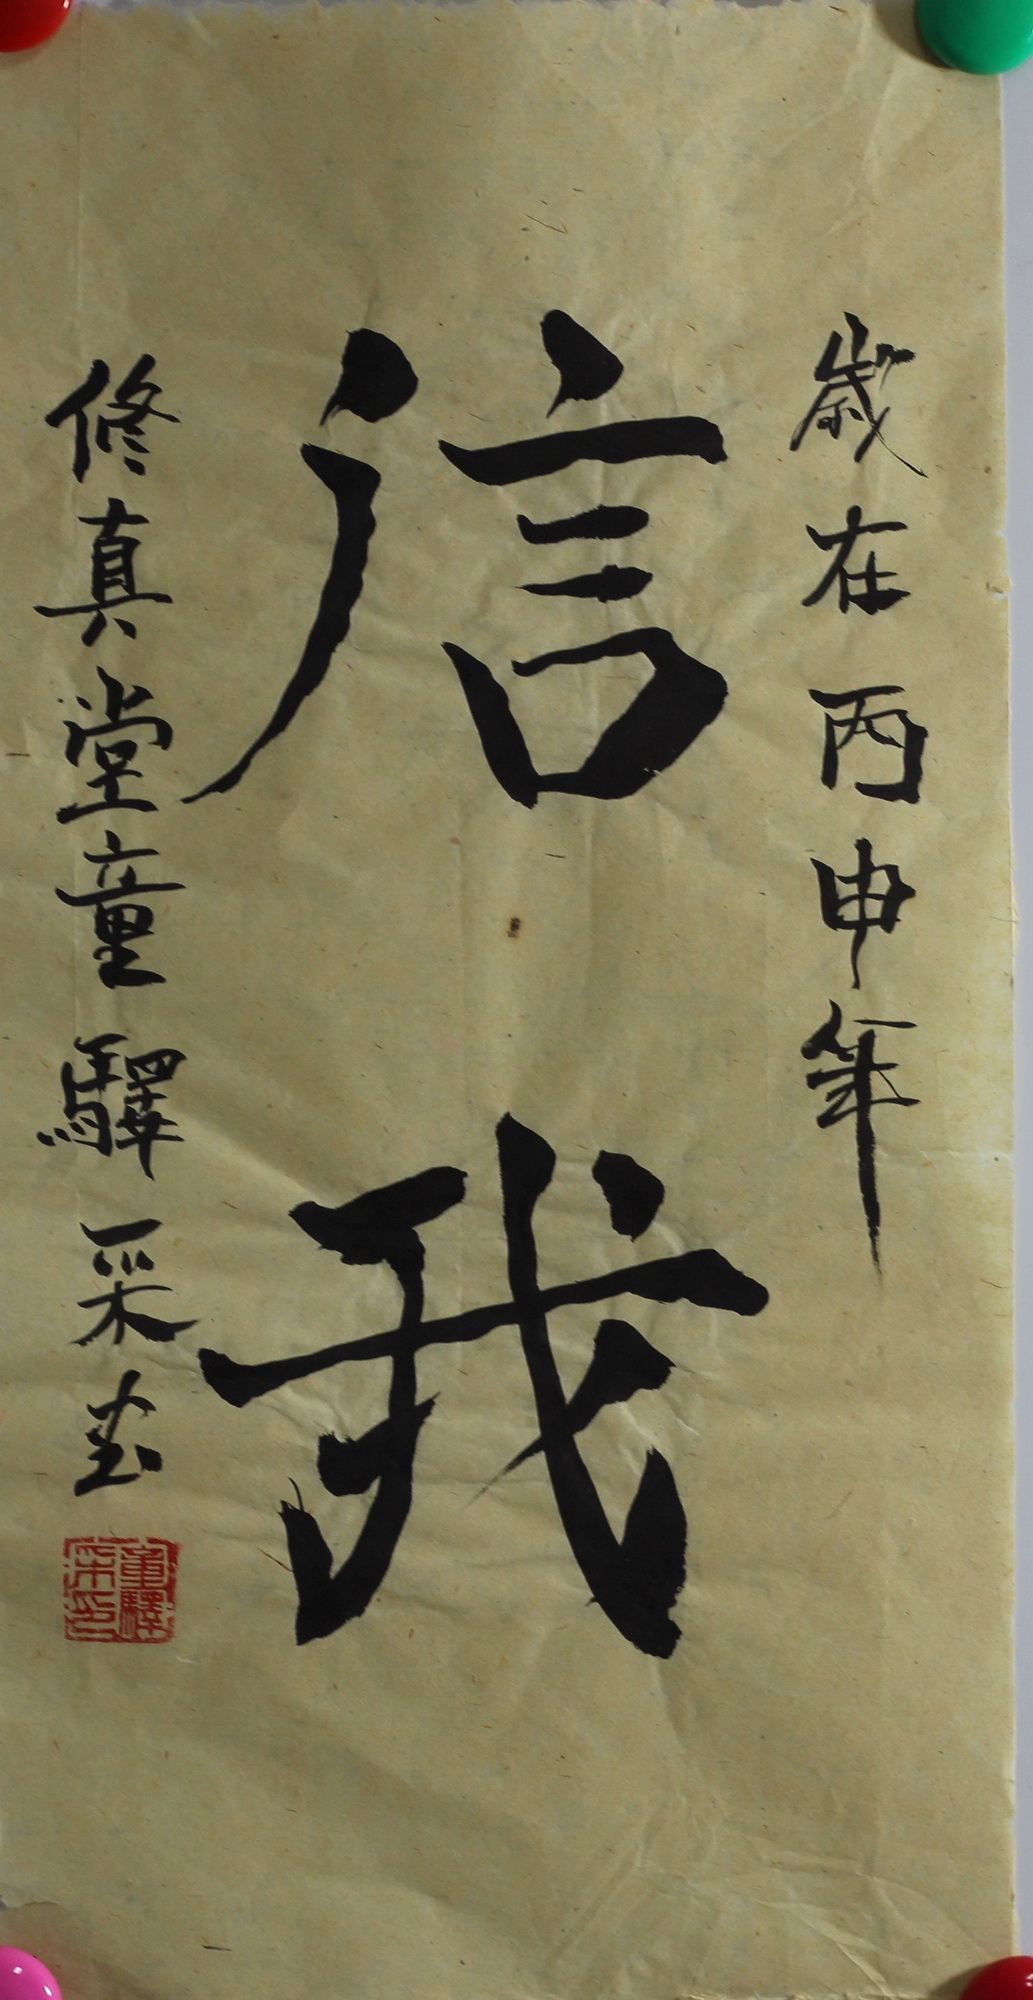 歲在丙申年
信我
修真堂童驛采書
童驛
采印